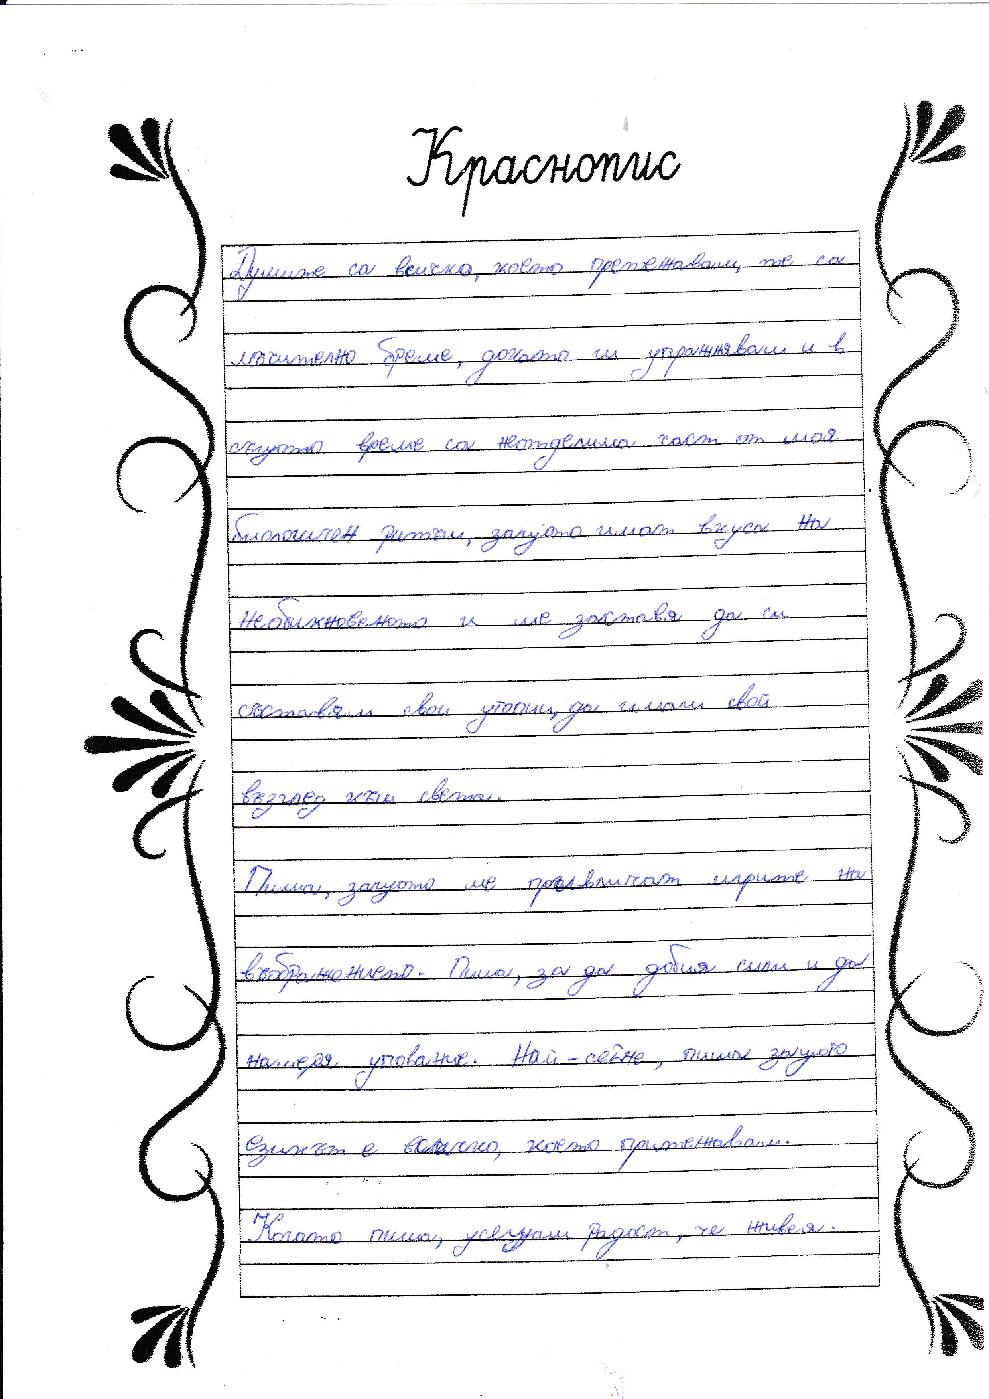 Краснопис
Думите са всичко, което притежавам, те са
мъчително бреме, докато ги упражнявам и в
същото време са неотделима част от моя
биологичен ритъм, защото имат вкуса на
необикновеното и ме заставя да си
съставям свои утопии, да имам свой
възглед към света.
Пиша, защото ме привличат игрите на
въображението. Пиша, за да добия сили и да
намеря упование. Най-сетне, пиша защото
езикът е всичко, което притежавам.
Когато пиша, усещам радост, че живея.